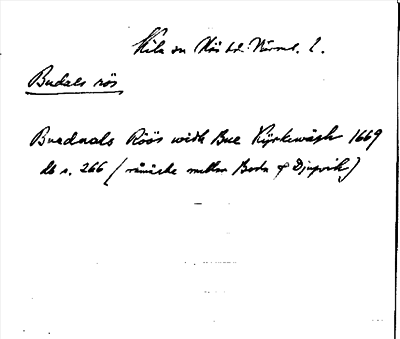 Kila sn Näs hd. Värml. l.
Budals rös
Buadaals Röös widh Bue Kyrkewägh 1669
db s. 266 (råmärke mellan Borta & Djupvik)